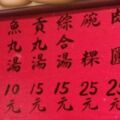 肉圓 25元
碗粿 25元
綜合湯 15元
貢丸湯 15元
魚丸湯 10元